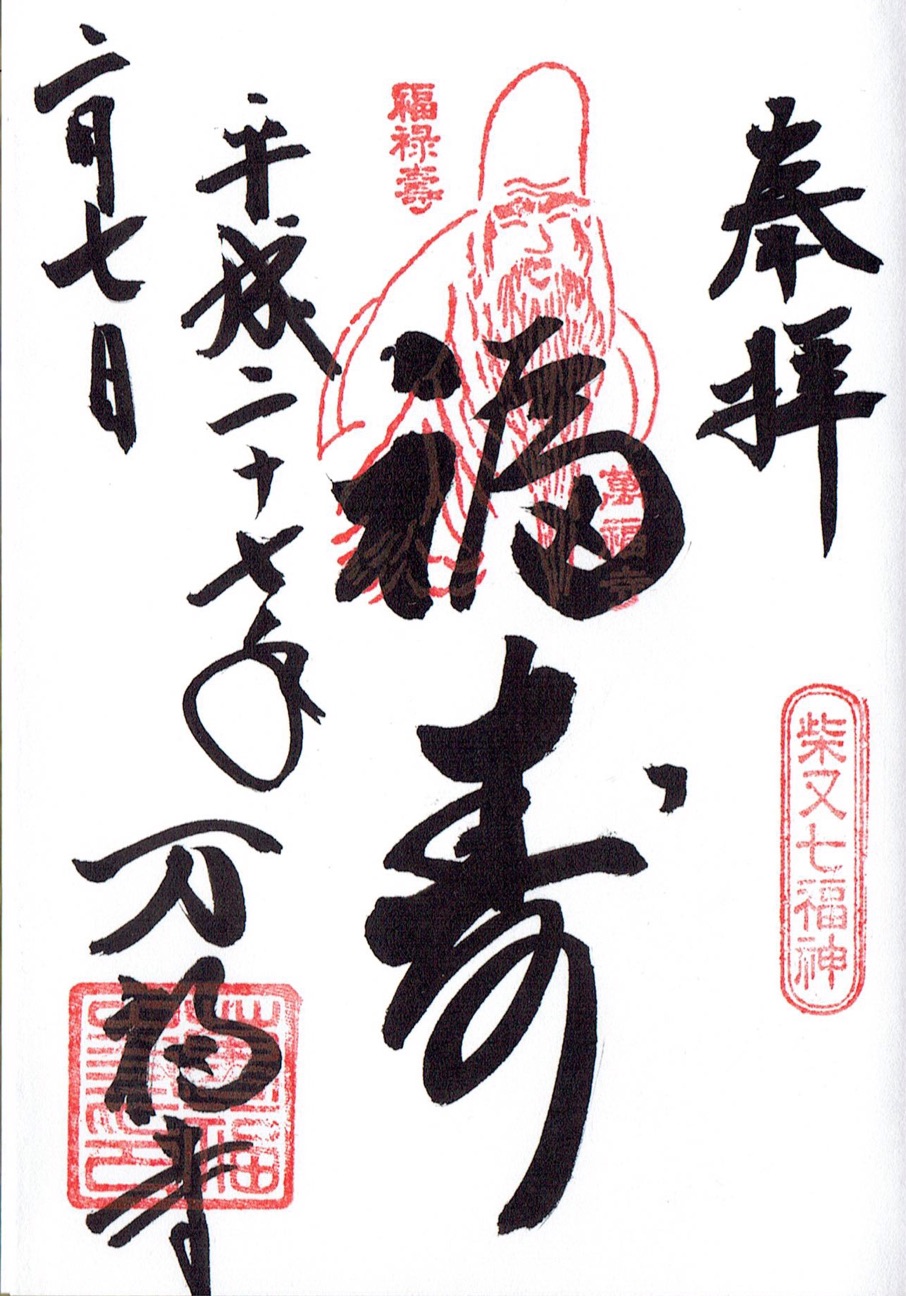 奉拝
柴又七福神
福寿
福禄壽
萬福寺
平成二十七年
二月七日
万福寺